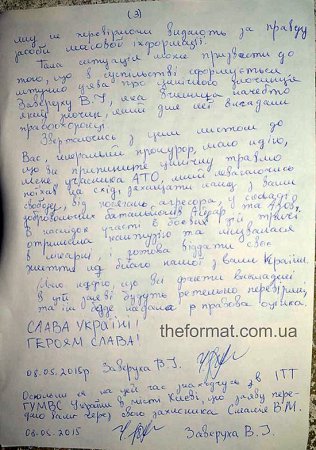 (3)
яку не перевіривши видають за правду
засоби масової інформації.
Така ситуація може призвести до
того, що в суспільстві сформується
штучно уява про злочинця
Заверуху В.І, яка вчинила начебто
якийсь злочин, який для неї вигадали
правоохоронці.
Звертаючись з цим листом до
Вас, шановний прокурор, маю надію,
що ви припините цинічну травлю
мене, учасника АТО, який не вагаючись
поїхав на схід захищати нашу з вами
свободу, від агресора, у складі
добровольчих батальйонів Айдар
в наслідок участі в бойових тричі
отримала контузію та лікувалася
в лікарні, і готова віддати своє
життя на благо нашої з вами України.
Маю надію, що всі факти викладені
в цій заяві будуть ретельно перевірені,
та їм буде надана правова оцінка.
СЛАВА УКРАЇНІ!
ГЕРОЯМ СЛАВА!
theformat.com.ua
08.05.2015р Заверуха В.І.
Оскільки я на цей час знаходжусь в ІТТ
ГУМВС України в місті Києві, цю заяву пере-
даю вам через свого захисника В.М.
08.05.2015 Заверуха В.І.